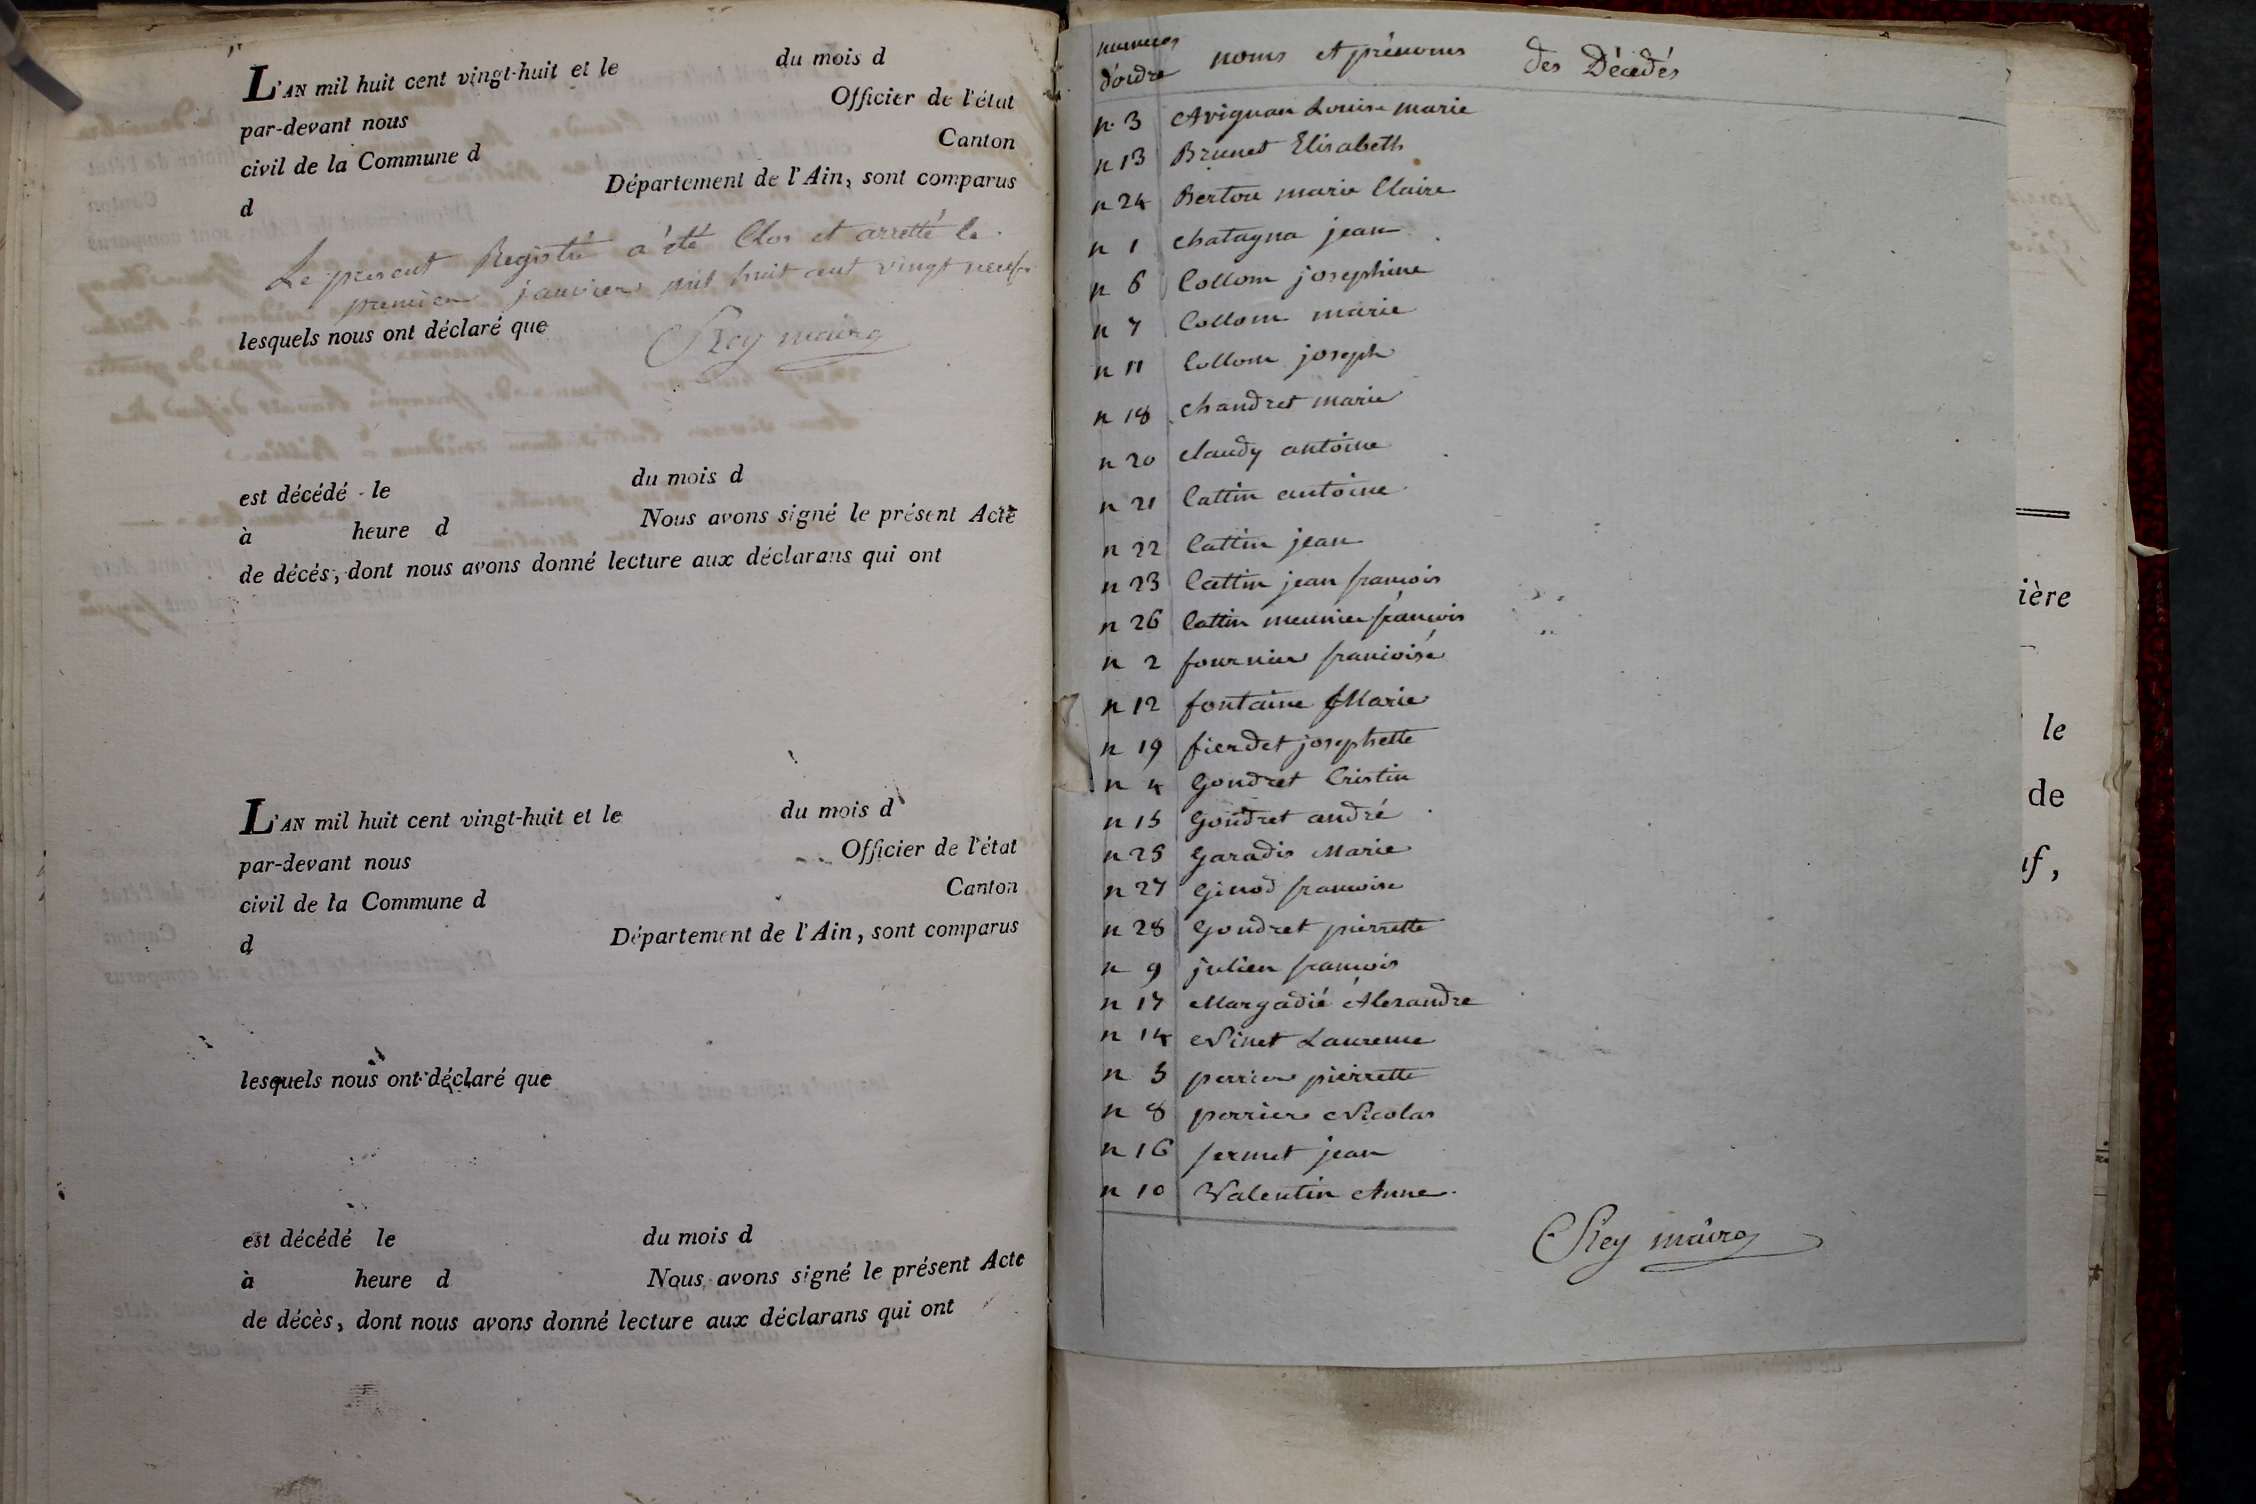 L'AN mil huit cent vingt-huit et le du mois d
par-devant nous Officier de l'état
civil de la Commune d Canton
d Département de l'Ain, sont comparus
Le present Registre a été Clos et arretté le
premier janvier mil huit cent vingt neuf
lesquels nous ont déclaré que
Rey maire
est décédé le du mois d
à heure d Nous avons signé le présent Acte
de décés, dont nous avons donné lecture aux déclarans qui ont
L'AN mil huit cent vingt-huit et le du mois d
par-devant nous Officier de l'état
civil de la Commune d Canton
d Département de l'Ain, sont comparus
lesquels nous ont déclaré que
est décédé le du mois d
à heure d Nous avons signé le présent Acte
de décès, dont nous avons donné lecture aux déclarans qui ont
numeros d'ordre noms et prénoms des Décédés
n. 3 Avignan Louise marie
n 13 Brunet Elisabeth
n 24 Berton marie Claire
n 1 chatagna jean
n 6 Collom josephine
n 7 Collom marie
n 11 Collom joseph
n 18 chandret marie
n 20 claudy antoine
n 21 Cattin antoine
n 22 Cattin jean
n 23 Cattin jean francois
n 26 Cattin meunier francois
n 2 fournier francoise
n 12 fontaine Marie
n 19 fierdet josephette
n 4 Gondret Cristin
n 15 Gondret andré
n 25 Garadis Marie
n 27 Ginod francoise
n 28 Gondret pierrette
n 9 julien francois
n 17 Margadié Alexandre
n 14 Ninet Laurence
n 5 perrier pierrette
n 8 perrier Nicolas
n 16 sermet jean
n 10 Valentin Anne
Rey maire
ière
le
de
uf,